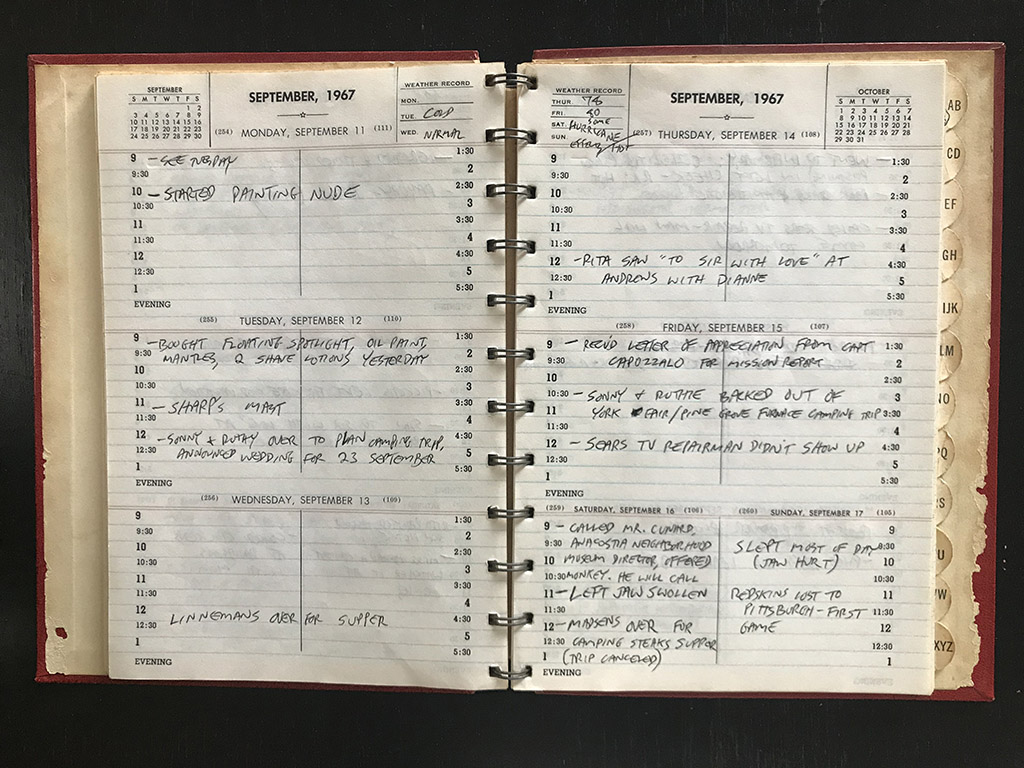 SEPTEMBER
S M T W T F S
1 2
3 4 5 6 7 8 9
10 11 12 13 14 15 16
17 18 19 20 21 22 23
24 25 26 27 28 29 30
SEPTEMBER, 1967
WEATHER RECORD
MON.
TUE. COLD
WED. NORMAL
(254) MONDAY, SEPTEMBER 11 (111)
9 - SEE TUESDAY 1:30
9:30 2
10 - STARTED PAINTING NUDE 2:30
10:30 3
11 3:30
11:30 4
12 4:30
12:30 5
1 5:30
EVENING
(255) TUESDAY, SEPTEMBER 12 (110)
9 - BOUGHT FLOATING SPOTLIGHT, OIL PAINT, 1:30
9:30 MANTLES, 2 SHAVE LOTIONS YESTERDAY 2
10 2:30
10:30 3
11 - SHARP'S MAST 3:30
11:30 4
12 - SONNY & RUTHY OVER TO PLAN CAMPING TRIP, 4:30
12:30 ANNOUNCED WEDDING FOR 23 SEPTEMBER 5
1 5:30
EVENING
(256) WEDNESDAY, SEPTEMBER 13 (109)
9 1:30
9:30 2
10 2:30
10:30 3
11 3:30
11:30 4
12 4:30
12:30 LINNEMANS OVER FOR SUPPER 5
1 5:30
EVENING
WEATHER RECORD
THUR. 78
FRI. 80
SAT. SOME
SUN. HURRICANE
EFFECT HOT
SEPTEMBER, 1967
OCTOBER
S M T W T F S
1 2 3 4 5 6 7
8 9 10 11 12 13 14
15 16 17 18 19 20 21
22 23 24 25 26 27 28
29 30 31
(257) THURSDAY, SEPTEMBER 14 (108)
9 1:30
9:30 2
10 2:30
10:30 3
11 3:30
11:30 4
12 - RITA SAW "TO SIR WITH LOVE" AT 4:30
12:30 ANDREWS WITH DIANNE 5
1 5:30
EVENING
(258) FRIDAY, SEPTEMBER 15 (107)
9 - RECVD LETTER OF APPRECIATION FROM CAPT 1:30
9:30 CAPOZZALO FOR MISSION REPORT 2
10 2:30
10:30 - SONNY & RUTHIE BACKED OUT OF 3
11 YORK FAIR/PINE GROVE FURNACE CAMPING TRIP 3:30
11:30 4
12 - SEARS TV REPAIRMAN DIDN'T SHOW UP 4:30
12:30 5
1 5:30
EVENING
(259) SATURDAY, SEPTEMBER 16 (106)
9 - CALLED MR. CUNARD,
9:30 ANACOSTIA NEIGHBORHOOD
10 MUSEUM DIRECTOR, OFFERED
10:30 MONKEY. HE WILL CALL
11 - LEFT JAW SWOLLEN
11:30
12 - MADSENS OVER FOR
12:30 CAMPING STEAKS SUPPER
1 (TRIP CANCELED)
EVENING
(260) SUNDAY, SEPTEMBER 17 (105)
9
SLEPT MOST OF DAY 9:30
(JAW HURT) 10
10:30
REDSKINS LOST TO 11
PITTSBURGH - FIRST 11:30
GAME 12
12:30
1
AB
CD
EF
GH
IJK
LM
NO
PQ
RS
U
VW
XYZ